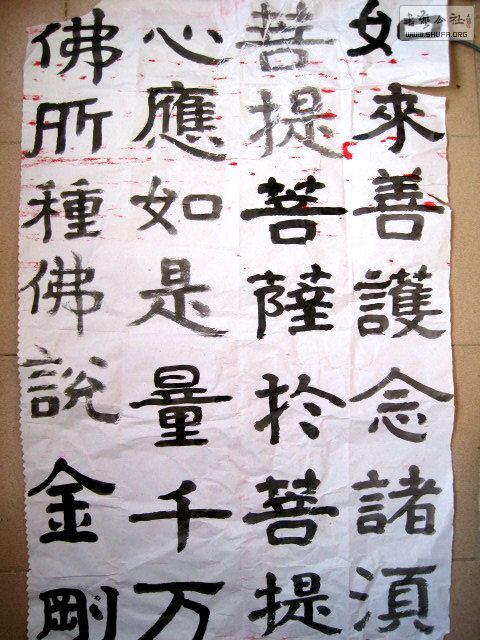 如來善護念諸湏
菩提菩薩於菩提
心應如是量千万
佛所種佛說金剛
WWW.SHUFA.ORG